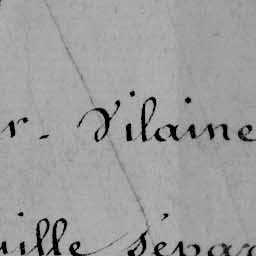 r. Vilaine
uille sépar